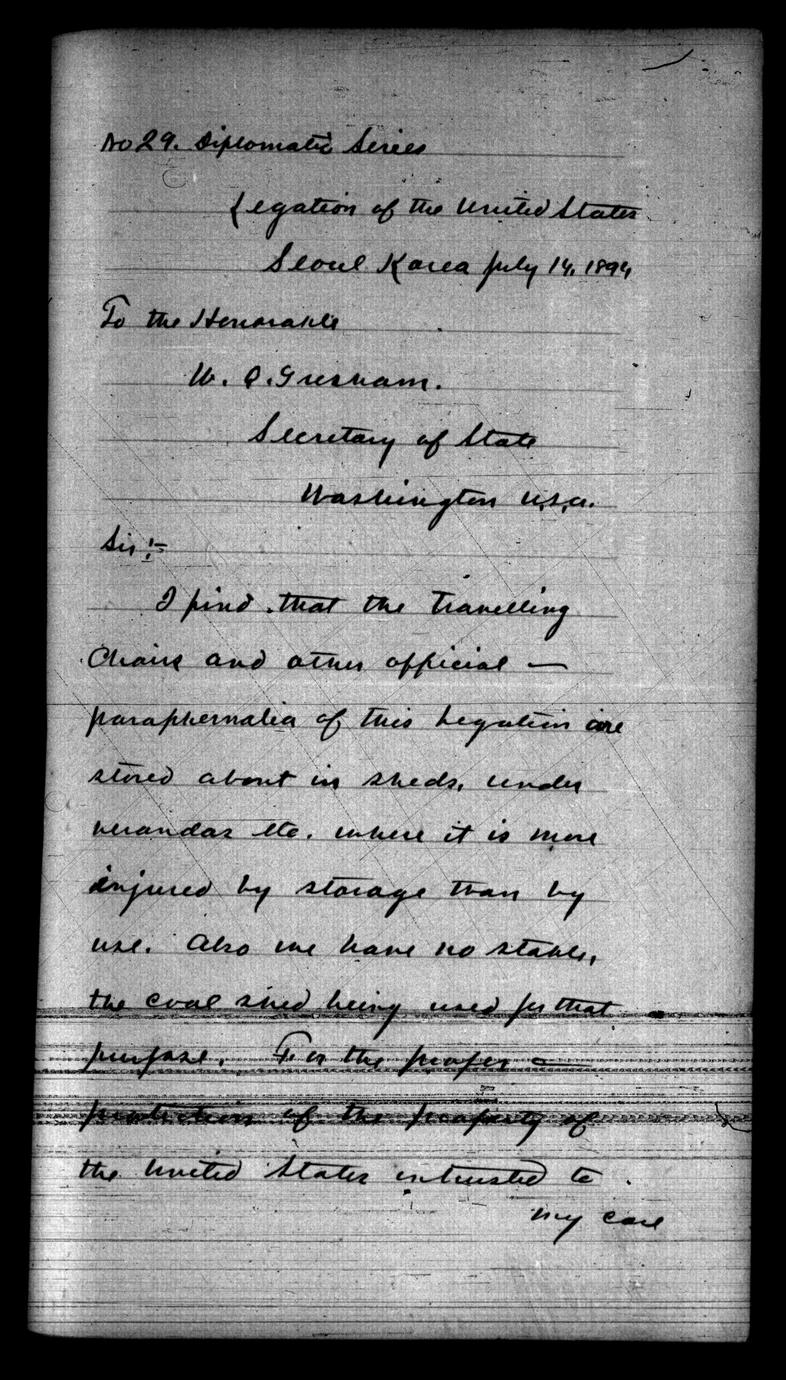 No 29. Diplomatic Series
Legation of the United States
Seoul Korea July 14, 1894
To the Honorable
W. Q. Gresham.
Secretary of State
Washington U.S.A.
Sir:-
I find that the travelling
Chairs and other official —
paraphernalia of this Legation are
stored about in sheds, under
verandas etc. where it is more
injured by storage than by
use. Also we have no stable,
the coal shed being used for that
purpose. For the proper —
protection of the property of
the United States intrusted to
my care